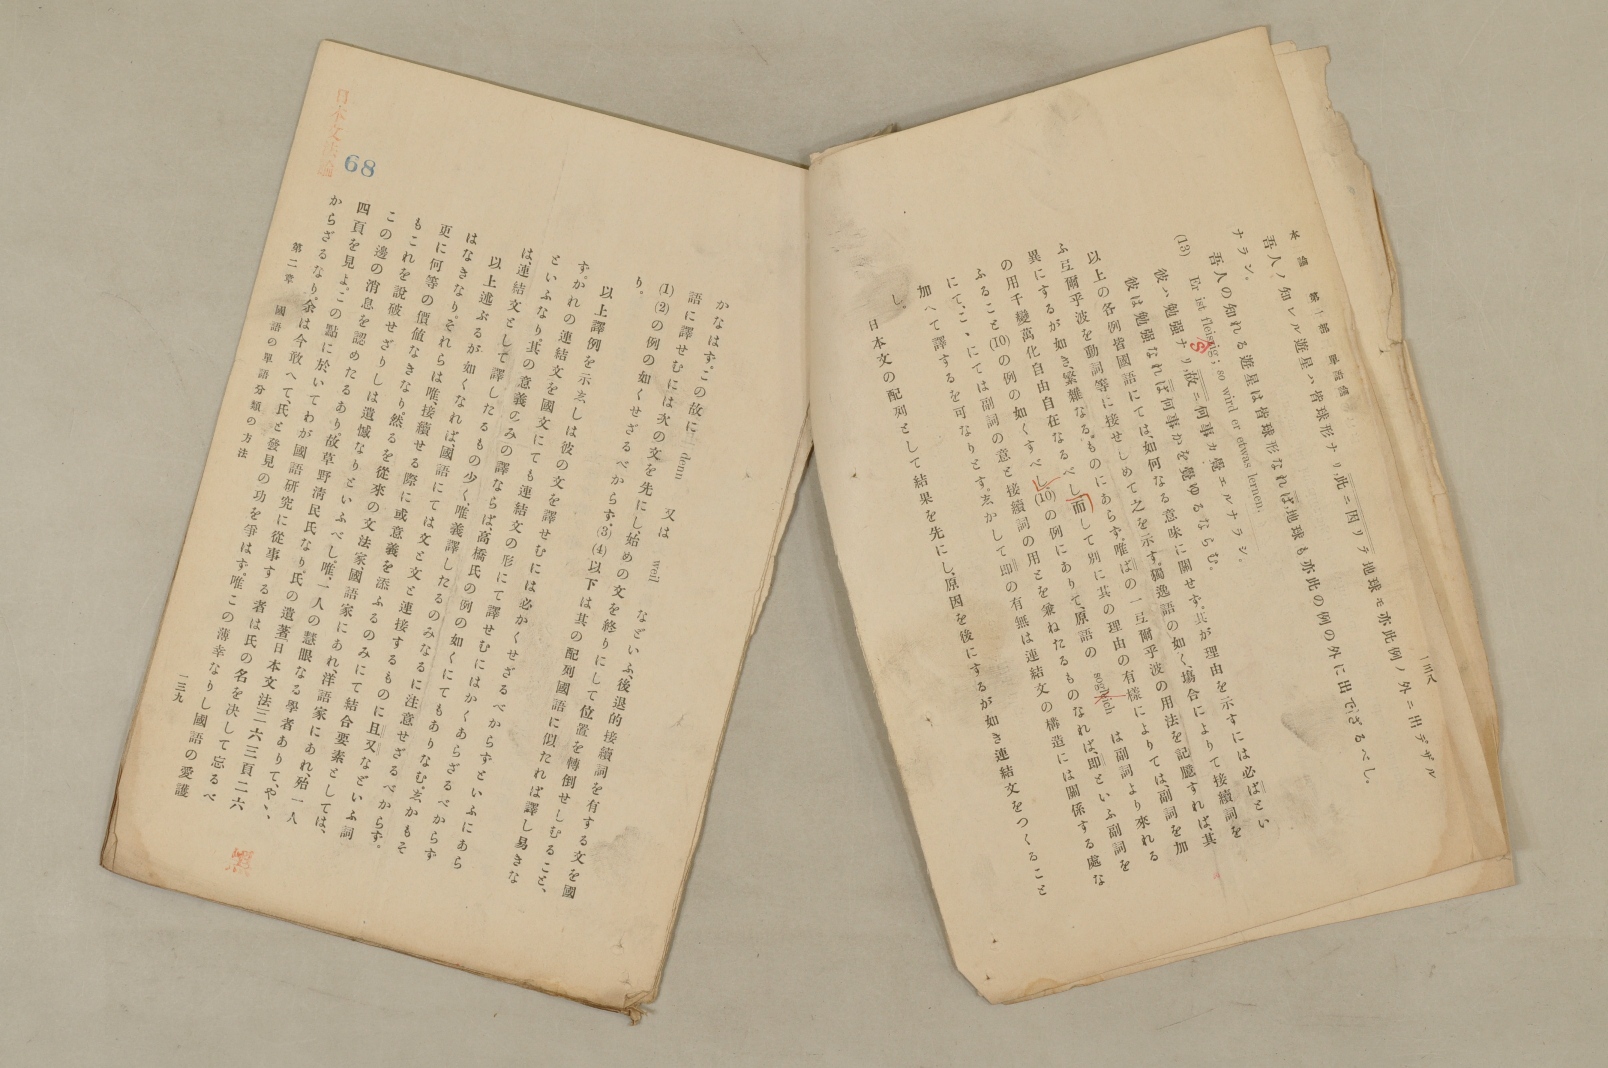 本論　第一部　單語論
一三八
吾人ノ知レル遊星ハ皆球形ナリ此ニ因リテ地球モ亦此例ノ外ニ出デザル
ナラン。
吾人の知れる遊星は皆球形なれば地球も亦此の例の外に出でざるべし。
(13) Er ist fleisig; so wird er etwas lernen.
彼ハ勉强ナリ故ニ何事カ覺エルナラン。
彼は勉强なれば何事かを覺ゆるならむ。
以上の各例省國語にては、如何なる意味に關せず、其が理由を示すには必ばとい
ふ弖爾乎波を動詞等に接せしめて之を示す。獨逸語の如く、場合によりて接續詞を
異にするが如き、繁雜なるものにあらず。唯ばの一弖爾乎波の用法を記臆すれば、其
の用千變萬化自由自在なるべし而して別に其の理由の有樣によりては、副詞を加
ふること(10)の例の如くすべし(10)の例にありて、原語の sogleich は副詞より來れる
にて、こゝにては副詞の意と接續詞の用とを兼ねたるものなれば、即といふ副詞を
加へて譯するを可なりとす。志かして即の有無は連結文の構造には關係する處な
し。
日本文の配列として結果を先にし、原因を後にするが如き連結文をつくること
かなはず。この故に denn 又は weil などいふ、後退的接續詞を有する文を國
語に譯せむには次の文を先にし、始めの文を終りにして位置を轉倒せしむること、
(1)(2)の例の如くせざるべからず。(3)(4)以下は其の配列國語に似たれば譯し易きな
り。
以上譯例を示志しは彼の文を譯せむには必かくせざるべからずといふにあら
ず。かれの連結文を國文にても連結文の形にて譯せむにはかくあらざるべからず
といふなり。其の意義のみの譯ならば、高橋氏の例の如くにてもありなむ。志かもそ
は、連結文として譯したるもの少く、唯義譯したるのみなるに注意せざるべからず。
以上述ぶるが如くなれば、國語にては文と文と連接するものに且又などいふ詞
はなきなり。それらは唯、接續せる際に或意義を添ふるのみにて結合要素としては、
更に何等の價値なきなり。然るを從來の文法家、國語家にあれ、洋語家にあれ、殆一人
もこれを說破せざりしは遺憾なりといふべし。唯、一人の慧眼なる學者ありて、やゝ、
この邊の消息を認めたるあり。故草野淸民氏なり。氏の遺著日本文法二六三頁二六
四頁を見よ。この點に於いてわが國語研究に從事する者は氏の名を決して忘るべ
からざるなり。余は今敢へて、氏と發見の功を爭はず。唯この薄幸なりし國語の愛護
第二章　國語の單語分類の方法
一三九
日本文法論
68